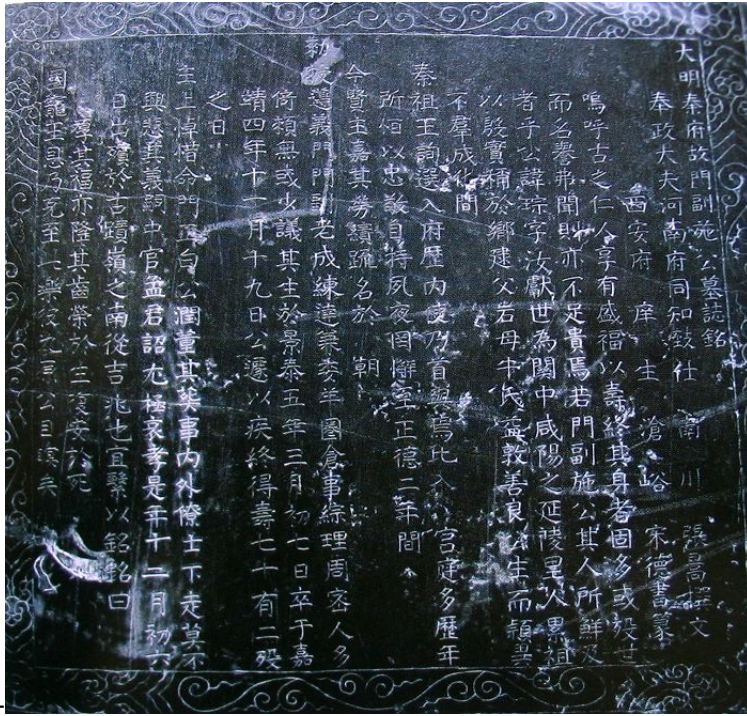 大明秦府故門副施公墓誌銘
奉政大夫河南府同知致仕南川張最撰文
西安府庠生滄峪宋德書篆
嗚呼古之仁人享有盛福以壽終其身者固多或殁世
而名譽弗聞則亦不足貴焉若門副施公其人所鮮及
者乎公諱琮字汝獻世為關中咸陽之延陵里人累祖
以殷實稱於鄉建父岩母牛氏益敦善良公生而穎異
不羣成化間
秦祖王詢選入府歷內使乃首與焉比入宮庭多歷年
所恒以忠敬自持夙夜罔懈至正德二年間
今賢主嘉其勞績疏名於朝
勑授門副老成練達兼委年國倉事綜理周密人多
倚賴無或少議其生於景泰五年三月初七日卒于嘉
靖四年十一月十九日公遽以疾終得壽七十有二殁
之日
主上悼惜命門正白公潤董其喪事內外僚士下走莫不
興悲其義嗣中官孟君詔尤極哀孝是年十二月初六
日出殯於吉蹟嶺之南從吉兆也宜繫以銘銘曰
其福亦隆其齒榮於生復安於死
國寵至
公目瞑矣